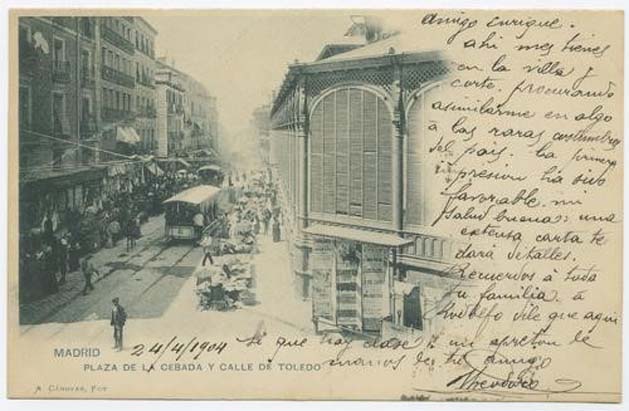 amigo enrique.
ahi me tienes
en la villa y
corte. procurando
asimilarme en algo
a las raras costumbres
del pais. La primera
impresion ha sido
favorable. mi
salud buena: una
extensa carta te
dará detalles.
Recuerdos à toda
tu familia. à
Rodolfo dile que aqui
si que hay clase y un apreton de
manos de tu amigo
Theodoro
MADRID
24/4/1904
PLAZA DE LA CEBADA Y CALLE DE TOLEDO
A. Cánovas, Fot